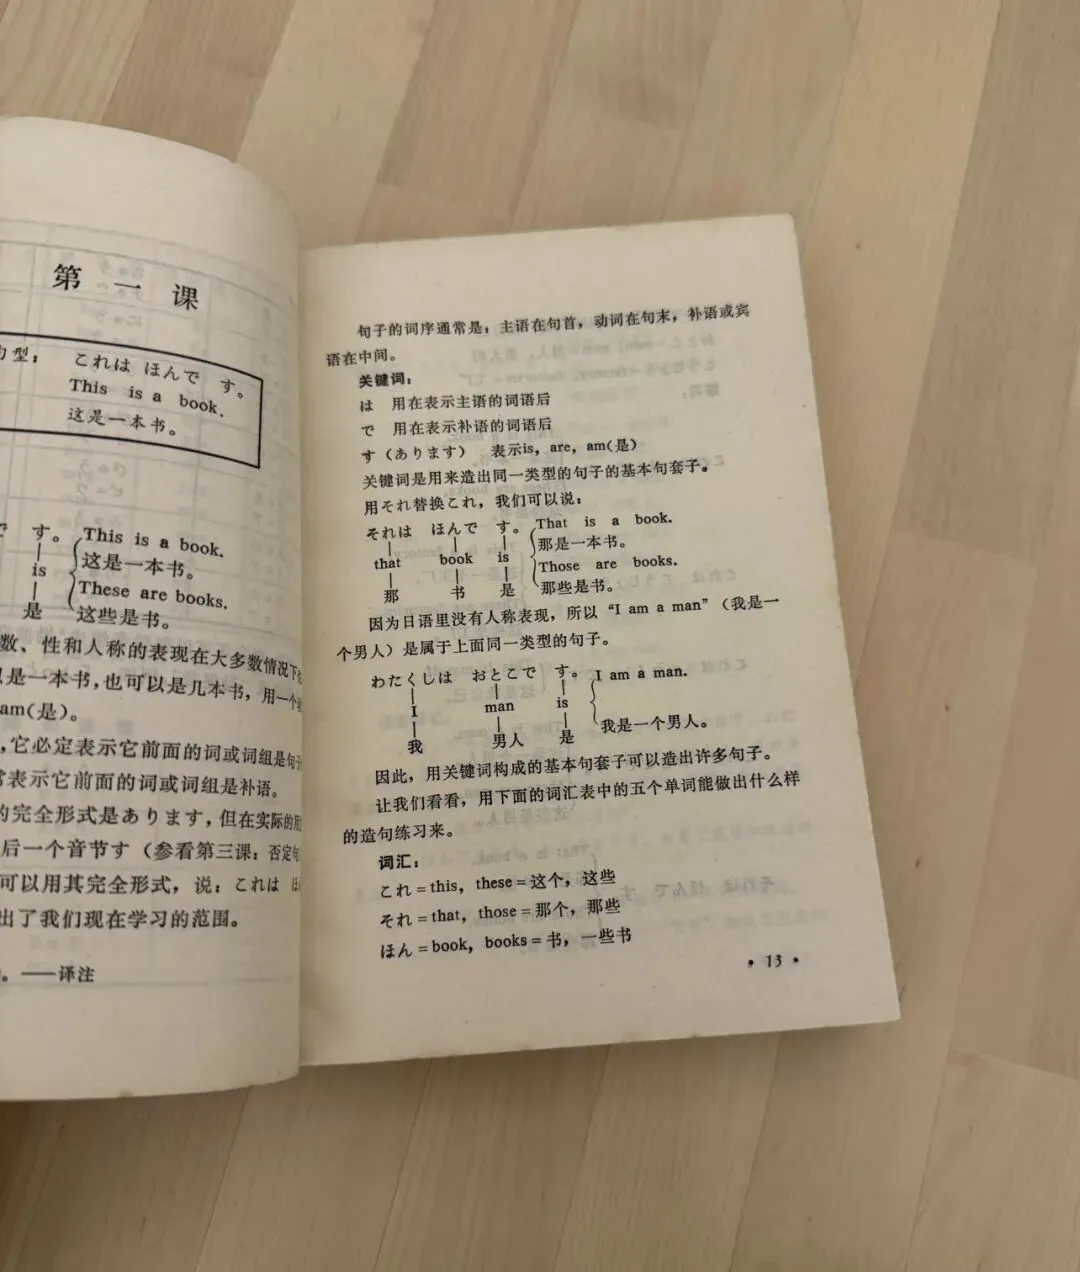 第一课
句型： これは ほんで す。
This is a book.
这是一本书。
で す。 This is a book.
这是一本书。
is
These are books.
是 这些是书。
数、性和人称的表现在大多数情况下
是一本书，也可以是几本书，用一个
am(是)。
，它必定表示它前面的词或词组是句
常表示它前面的词或词组是补语。
的完全形式是あります，但在实际的用
后一个音节す（参看第三课：否定句
可以用其完全形式，说：これは ほ
出了我们现在学习的范围。
。——译注
句子的词序通常是：主语在句首，动词在句末，补语或宾
语在中间。
关键词：
は 用在表示主语的词语后
で 用在表示补语的词语后
す（あります） 表示is，are，am(是)
关键词是用来造出同一类型的句子的基本句套子。
用それ替换これ，我们可以说：
それは ほんで す。 That is a book.
那是一本书。
that book is
Those are books.
那 书 是 那些是书。
因为日语里没有人称表现，所以“I am a man”（我是一
个男人）是属于上面同一类型的句子。
わたくしは おとこで す。 I am a man.
I man is
我 男人 是 我是一个男人。
因此，用关键词构成的基本句套子可以造出许多句子。
让我们看看，用下面的词汇表中的五个单词能做出什么样
的造句练习来。
词汇：
これ＝this，these＝这个，这些
それ＝that，those＝那个，那些
ほん＝book，books＝书，一些书
• 13 •